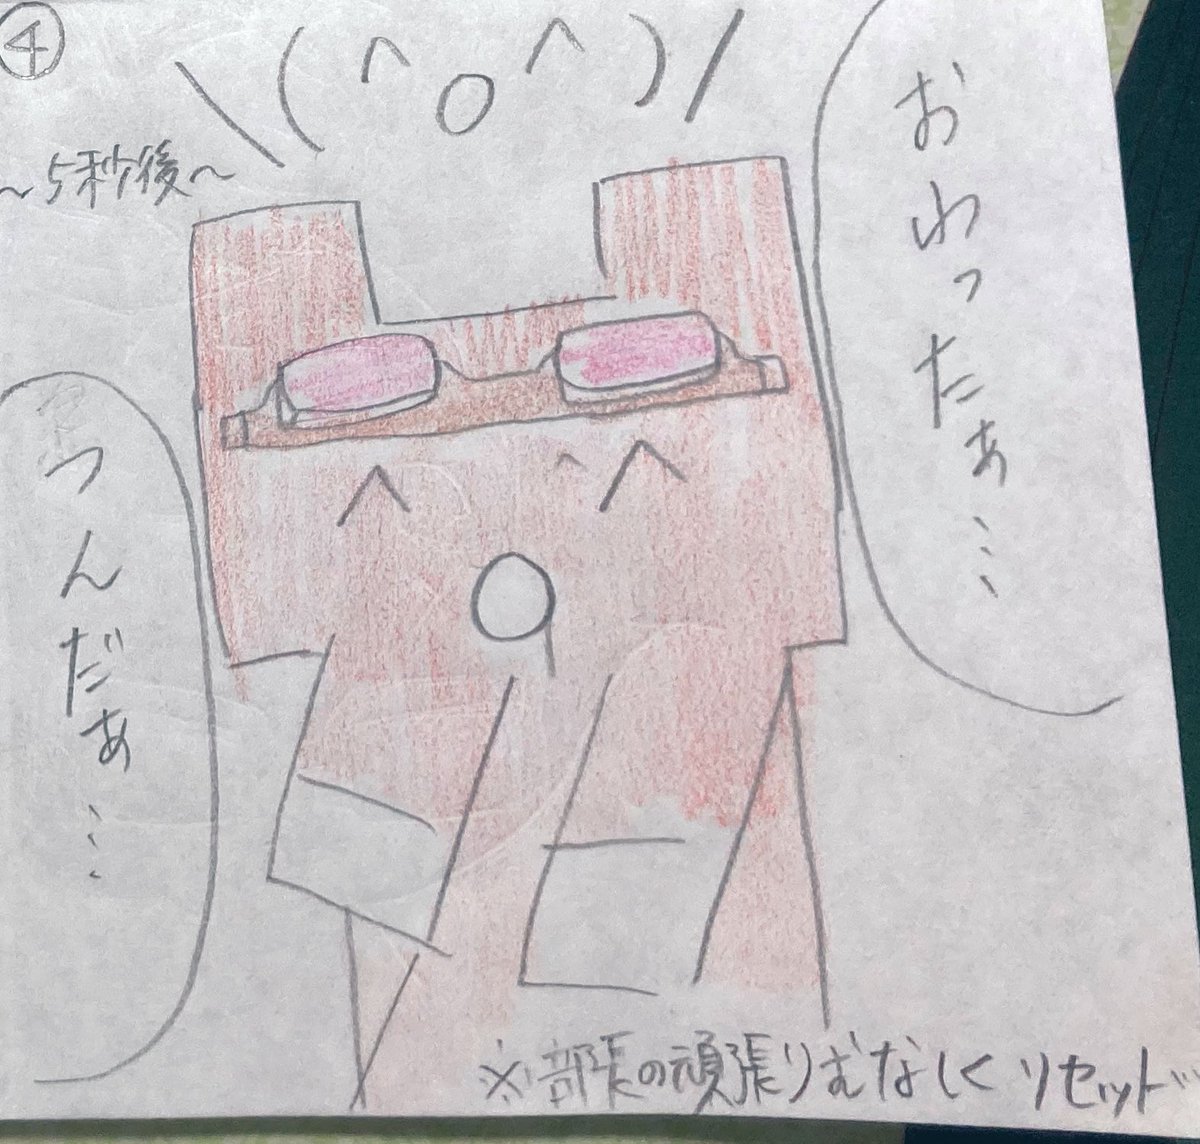 ④
\(^o^)/
～5秒後～
おわったぁ…
つんだぁ…
※部長の頑張りむなしくリセット…